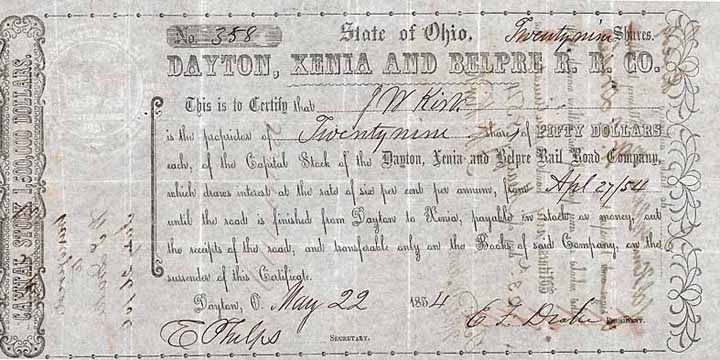 CAPITAL STOCK 1,500,000 DOLLARS.
No. 358 State of Ohio, Twentynine Shares.
DAYTON, XENIA AND BELPRE R. R. CO.
This is to Certify that J W Kirk
is the proprietor of Twentynine shares of FIFTY DOLLARS
each, of the Capital Stock of the Dayton, Xenia and Belpre Rail Road Company,
which draws interest at the rate of six per cent per annum, from Apl 27/54
until the road is finished from Dayton to Xenia, payable in stock or money, out
the receipts of the road, and transferable only on the Books of said Company, on the
surrender of this Certificate.
Dayton, O. May 22 1854
E Phelps SECRETARY. E. F. Drake PRESIDENT.